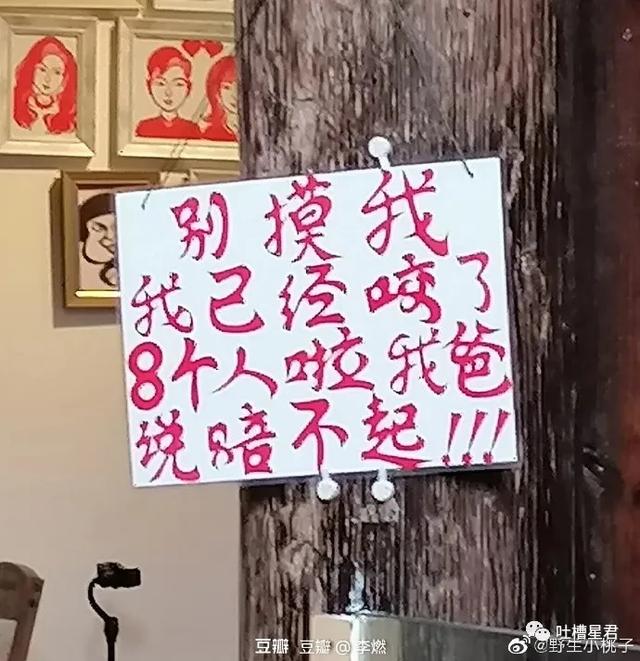 别摸我
我已经咬了
8个人啦我爸
说赔不起!!!
吐槽星君
豆瓣 豆瓣@李燃
@野生小桃子